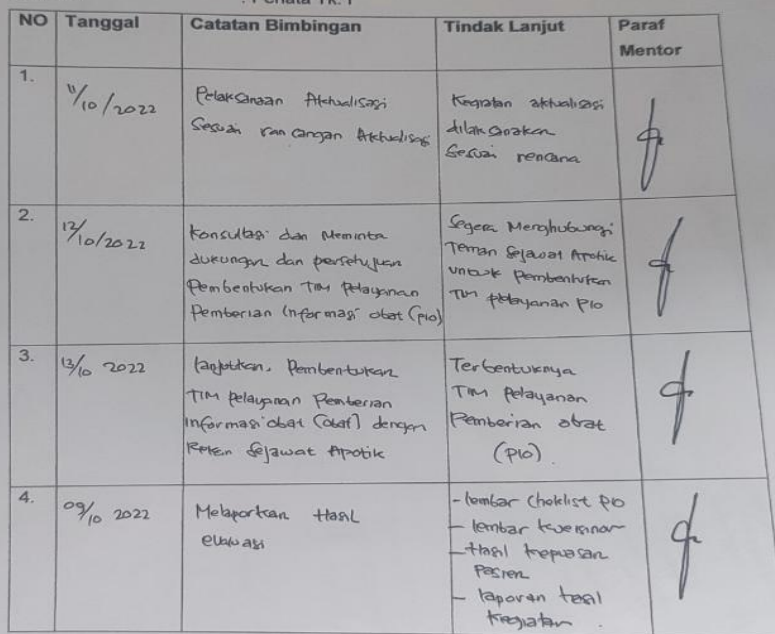 : Penata Tk. I
NO Tanggal Catatan Bimbingan Tindak Lanjut Paraf Mentor
1.
11/10/2022
Pelaksanaan Aktualisasi
Sesuai rancangan Aktualisasi
Kegiatan aktualisasi
dilaksanakan
Sesuai rencana
2.
12/10/2022
Konsultasi dan Meminta
dukungan dan persetujuan
Pembentukan TIM Pelayanan
Pemberian Informasi obat (PIO)
Segera Menghubungi
Teman Sejawat Apotik
untuk Pembentukan
TIM pelayanan PIO
3.
13/10 2022
lanjutkan, Pembentukan
TIM Pelayanan Pemberian
Informasi obat (obat) dengan
Rekan Sejawat Apotik
Terbentuknya
TIM Pelayanan
Pemberian obat
(PIO)
4.
09/10 2022
Melaporkan Hasil
evaluasi
- lembar Cheklist PIO
- lembar kuesinor
- Hasil kepuasan
Pasien
- laporan hasil
kegiatan.